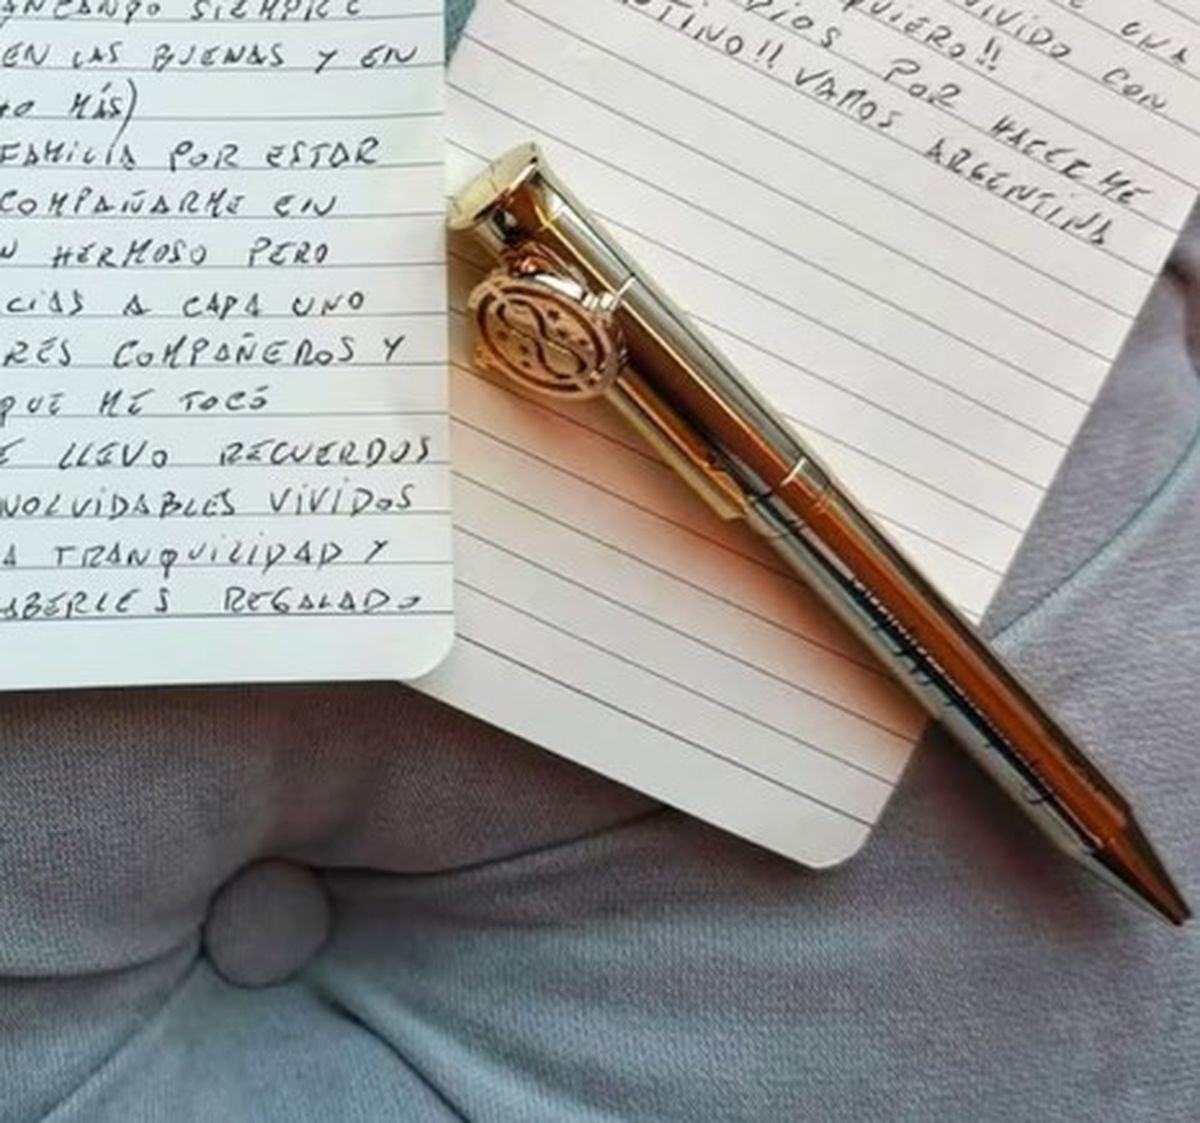 SIEMPRE
EN LAS BUENAS Y EN
MÁS)
FAMILIA POR ESTAR
COMPAÑARME EN
N HERMOSO PERO
CIAS A CADA UNO
RES COMPAÑEROS Y
QUE ME TOCÓ
E LLEVO RECUERDOS
NOLVIDABLES VIVIDOS
A TRANQUILIDAD Y
ABERLES REGALADO
UNA
VIVIDO CON
QUIERO!!
DIOS POR HACERME
NTINO!! VAMOS ARGENTINA